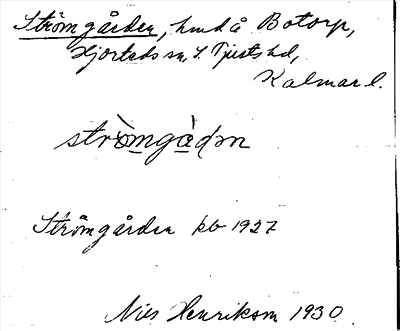 Strömgården, hmd å Botorp,
Hjorteds sn, S. Tjusts hd,
Kalmar l.
strò̀mgàdṇ
Strömgården kb 1927
Nils Henrikson 1930.